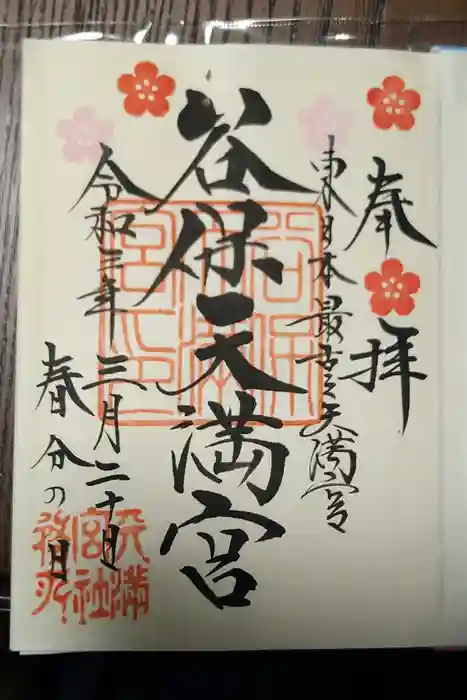 奉拝
東日本最古之天満宮
谷保天満宮
令和三年
三月二十日
春分の日
谷保天満宮之印
天満宮社務所